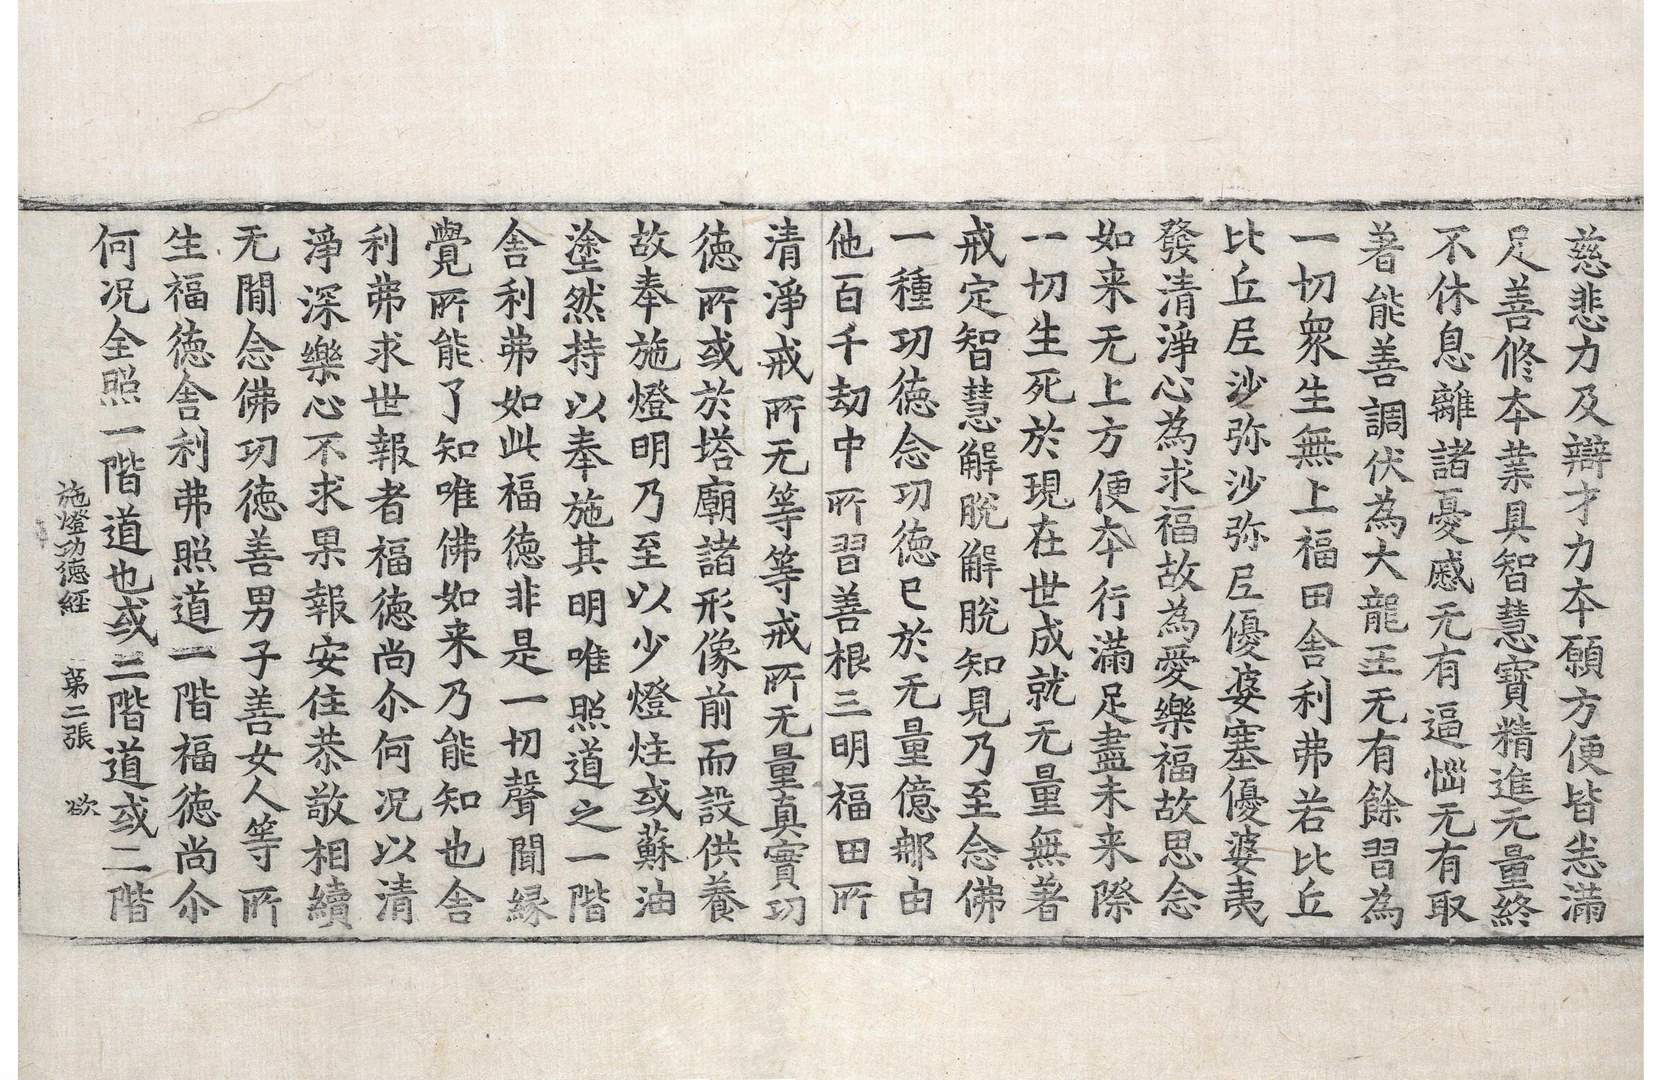 慈悲力及辯才力夲願方便皆悉滿
足善修夲業具智慧寶精進无量終
不休息離諸憂慼无有逼惱无有取
著能善調伏為大龍王无有餘習為
一切衆生無上福田舎利弗若比丘
比丘𡰱沙弥沙弥𡰱優婆塞優婆夷
發清淨心為求福故為愛樂福故思念
如来无上方便夲行滿足盡未来際
一切生死於現在世成就无量無著
戒定智慧解脫解脫知見乃至念佛
一種功徳念功徳已於无量億那由
他百千劫中所習善根三明福田所
清淨戒所无等等戒所无量真實功
徳所或於塔廟諸形像前而設供養
故奉施燈明乃至以少燈炷或蘇油
塗然持以奉施其明唯照道之一階
舎利弗如此福徳非是一切聲聞縁
覺所能了知唯佛如来乃能知也舎
利弗求世報者福徳尚尒何况以清
淨深樂心不求果報安住恭敬相續
无閒念佛功徳善男子善女人等所
生福徳舎利弗照道一階福徳尚尒
何况全照一階道也或二階道或三階
施燈功德経　第二張　欲